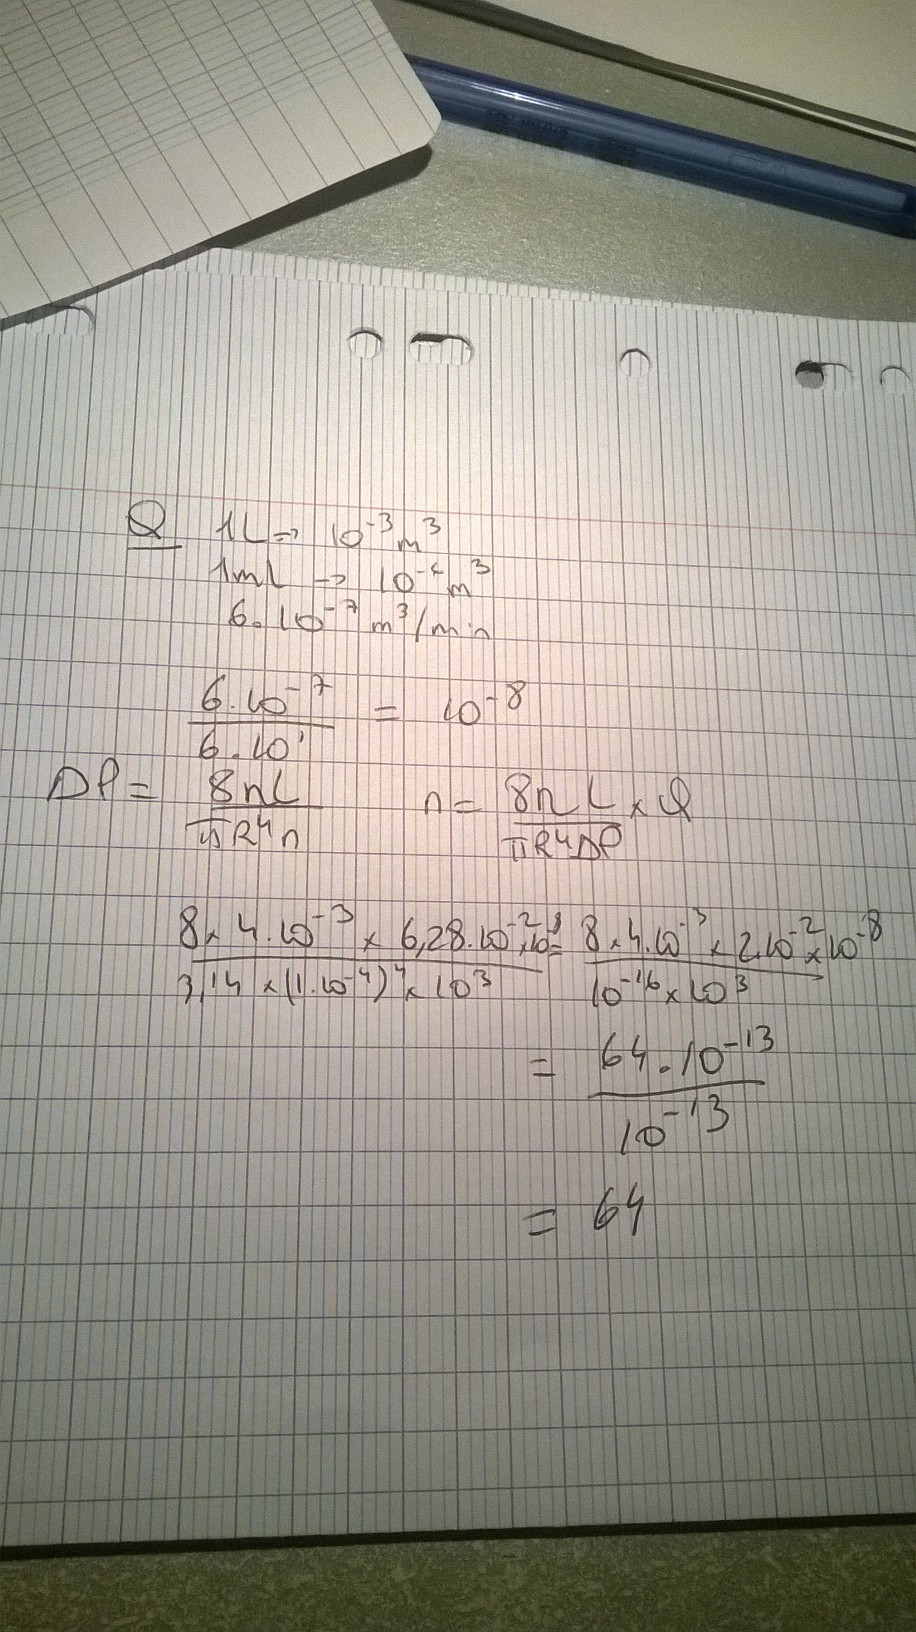 Q 1L → 10⁻³ m³
1mL → 10⁻⁶ m³
6.10⁻⁷ m³/min
6.10⁻⁷ / 6.10¹ = 10⁻⁸
DP = 8nL / πR⁴n n = 8nL / πR⁴DP × Q
8 × 4.10⁻³ × 6,28.10⁻² × 10⁻⁸ / 3,14 × (1.10⁻⁴)⁴ × 10³ = 8 × 4.10⁻³ × 2.10⁻² × 10⁻⁸ / 10⁻¹⁶ × 10³
= 64.10⁻¹³ / 10⁻¹³
= 64